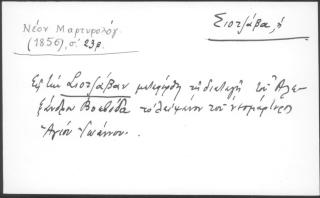 Νέον Μαρτυρολόγ.
(1856), σ. 23β.
Σιοτζάβα, ἡ
Εἰς τὴν Σιοτζάβαν μετεφέρθη τῇ διαταγῇ τοῦ Ἀλε-
ξάνδρου Βοεβόδα τὸ λείψανον τοῦ νεομάρτυρος
Ἁγίου Ἰωάννου.